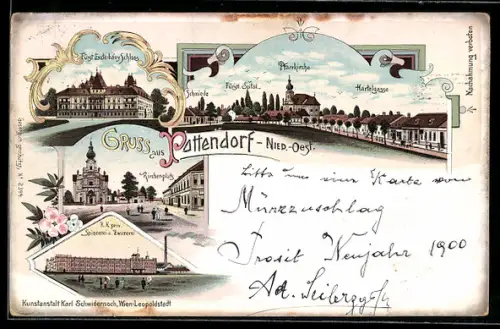 Fürst Esterházy Schloss
Pfarrkirche
Schmiede
Fürst. Spital
Hartelgasse
Nachahmung verboten
Gruss aus Pottendorf - Nied.-Oest.
Kirchenplatz
K. K. priv.
Spinnerei u. Zwirnerei
Kunstanstalt Karl Schwidernoch, Wien-Leopoldstadt
Bitte um eine Karte vom
Mürzzuschlag
Prosit Neujahr 1900
Ad.